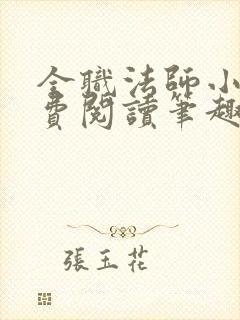 全職法師小
費閱讀筆趣
張玉花